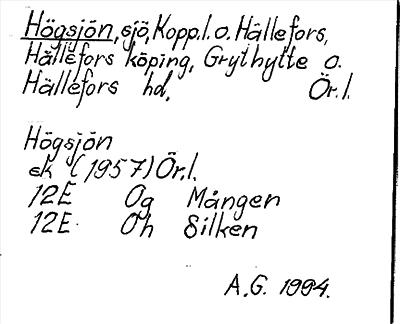 Högsjön, sjö, Kopp.l. o. Hällefors,
Hällefors köping, Grythytte o.
Hällefors hd, Ör.l.
Högsjön
ek (1957) Ör.l.
12E 0g Mången
12E 0h Silken
A.G. 1994.